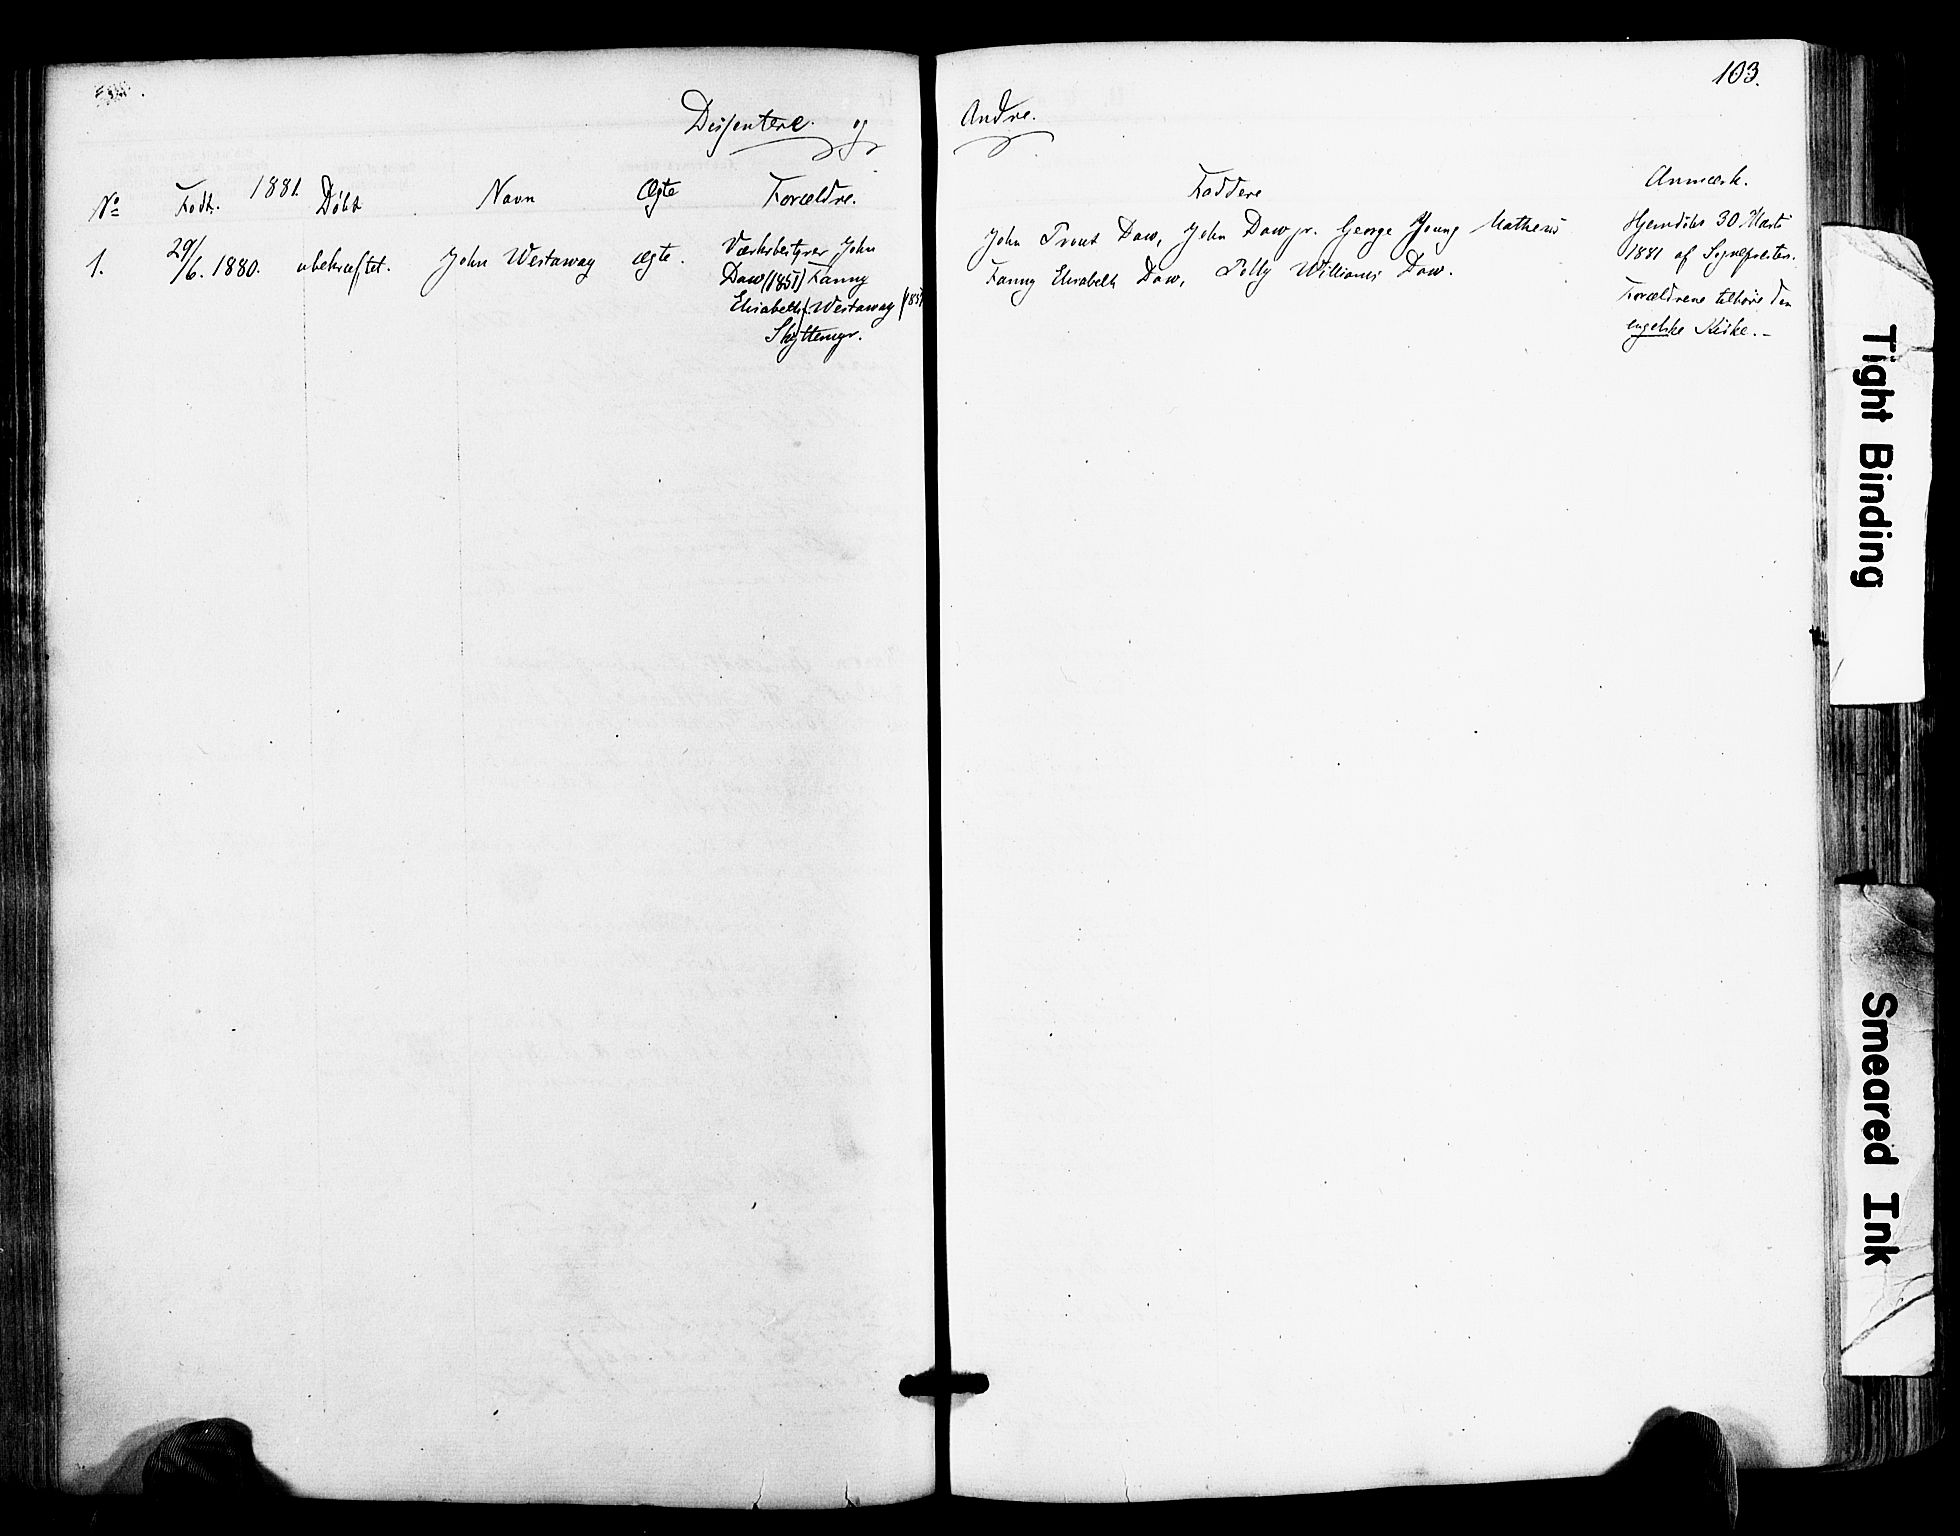 103.
Dissentere og Andre.
1881.
No Født. Døbt Navn Ægte Forældre. Faddere Anmærk.
1. 29/6. 1880. ubekræftet. John Westaway ægte.
Værksbestyrer John
Daw (1851) Fanny
Elisabeth f. Westaway (185
Skyttemyr.
John Trout Daw, John Daw jr. George Young Mathews
Fanny Elisabeth Daw, Polly Williams Daw.
Hjemdøbt 30 Marts
1881 af Sognepresten.
Forældrene tilhøre den
engelske Kirke. -
Tight Binding
Smeared Ink